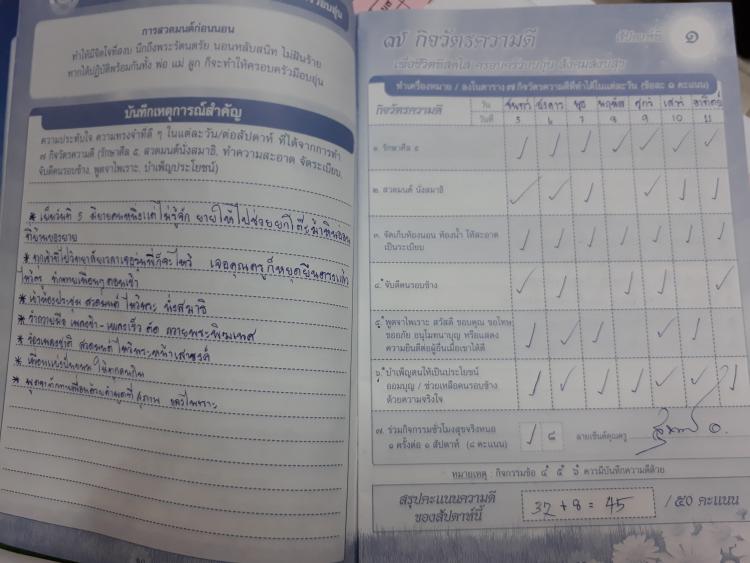 การสวดมนต์ก่อนนอน
ทำให้มีจิตใจที่สงบ นึกถึงพระรัตนตรัย นอนหลับสนิท ไม่ฝันร้าย
หากได้ปฏิบัติพร้อมกันทั้ง พ่อ แม่ ลูก ก็จะทำให้ครอบครัวมีอบอุ่น
บันทึกเหตุการณ์สำคัญ
ความประทับใจ ความทรงจำที่ดี ๆ ในแต่ละวัน/ต่อสัปดาห์ ที่ได้จากการทำ
๗ กิจวัตรความดี (รักษาศีล ๕, สวดมนต์นั่งสมาธิ, ทำความสะอาด จัดระเบียบ,
จับดีคนรอบข้าง, พูดจาไพเราะ, บำเพ็ญประโยชน์)
* เย็นวันที่ 5 มียายคนหนึ่งแต่ไม่รู้จัก ยายให้ไปช่วยยกโต๊ะม้าหินอ่อน
ที่บ้านของยาย
เจอคุณครูก็หยุดยืนตรงแล้ว
ไหว้ครู ทักทายเพื่อนๆตอนเช้า
* เข้าห้องประชุม สวดมนต์ ไหว้พระ นั่งสมาธิ
* ร้องเพลงชาติ สวดมนต์ ไหว้พระหน้าเสาธง
๗ กิจวัตรความดี สัปดาห์ที่ ๑
เพื่อชีวิตสดใส ครอบครัวอบอุ่น สังคมสงบสุข
ทำเครื่องหมาย / ลงในตาราง ๗ กิจวัตรความดีที่ทำได้ในแต่ละวัน (ข้อละ ๑ คะแนน)
กิจวัตรความดี วัน จันทร์ อังคาร พุธ พฤหัส ศุกร์ เสาร์ อาทิตย์
วันที่ 5 6 7 8 9 10 11
๑. รักษาศีล ๕
๒. สวดมนต์ นั่งสมาธิ
๓. จัดเก็บห้องนอน ห้องน้ำ ให้สะอาด
เป็นระเบียบ
๔. จับดีคนรอบข้าง
๕. พูดจาไพเราะ สวัสดี ขอบคุณ ขอโทษ
ขออภัย อนุโมทนาบุญ หรือแสดง
ความยินดีต่อผู้อื่นเมื่อเขาได้ดี
๖. บำเพ็ญตนให้เป็นประโยชน์
ออมบุญ / ช่วยเหลือคนรอบข้าง
ด้วยความจริงใจ
๗. ร่วมกิจกรรมชั่วโมงสุขจริงหนอ
๑ ครั้งต่อ ๑ สัปดาห์ (๘ คะแนน) / ๘ ลายเซ็นต์คุณครู
หมายเหตุ : กิจกรรมข้อ ๔ ๕ ๖ ควรมีบันทึกความดีด้วย
สรุปคะแนนความดี
ของสัปดาห์นี้ 37 + 8 = 45 / ๕๐ คะแนน